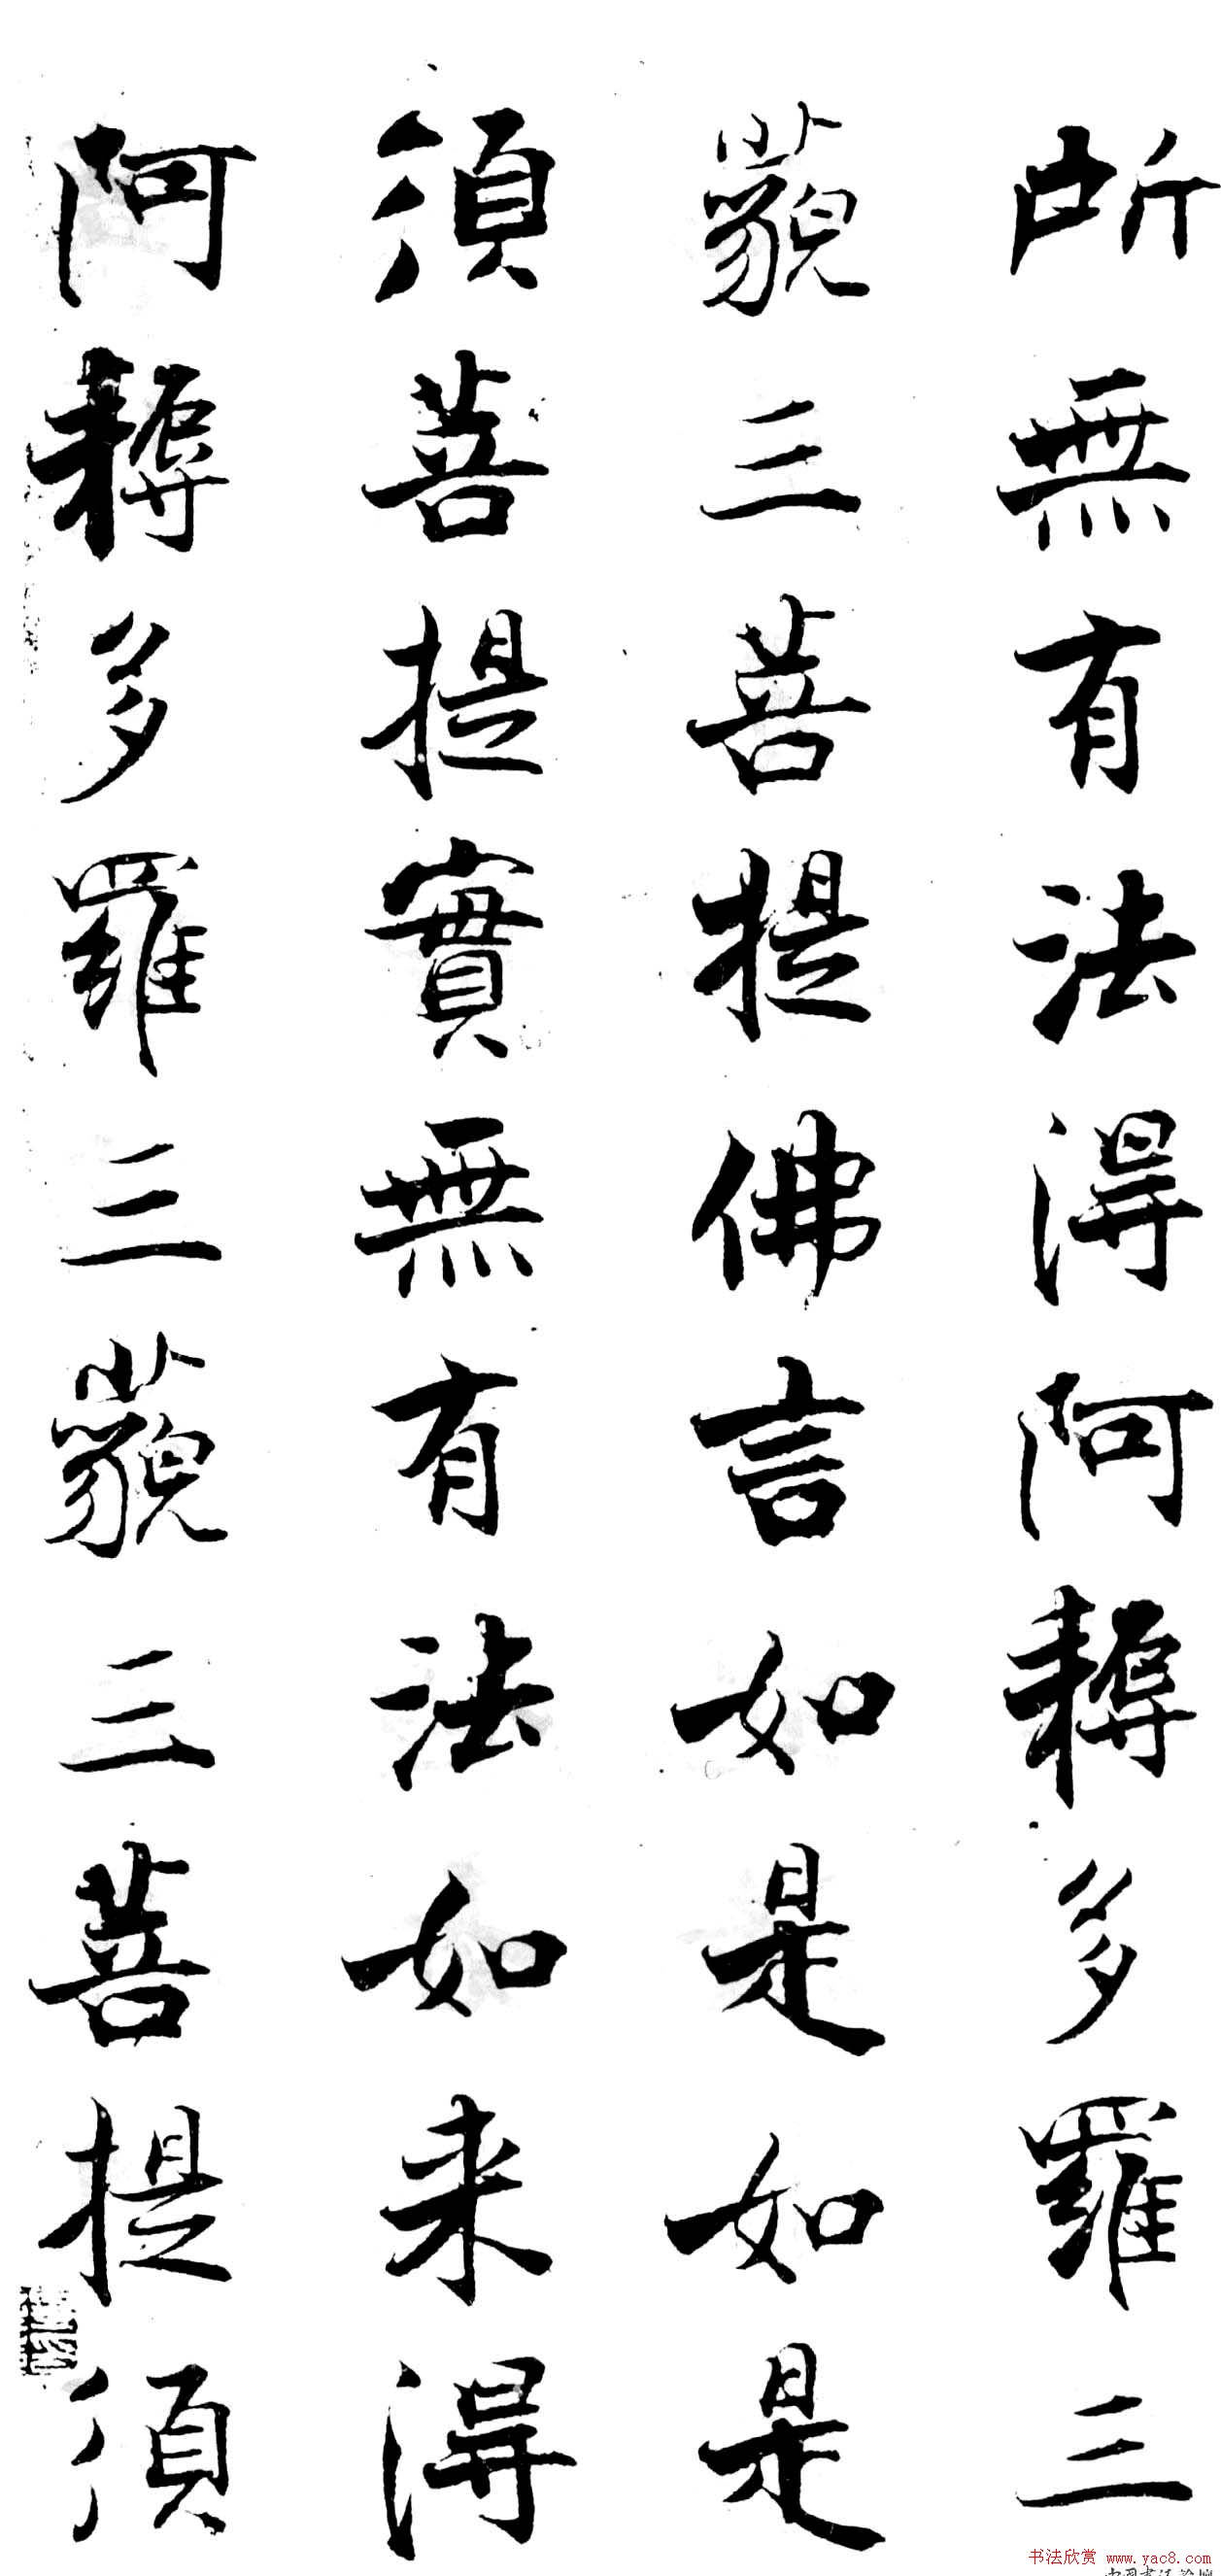 所無有法得阿耨多羅三
藐三菩提佛言如是如是
須菩提實無有法如来得
阿耨多羅三藐三菩提須
书法欣赏 www.yac8.com